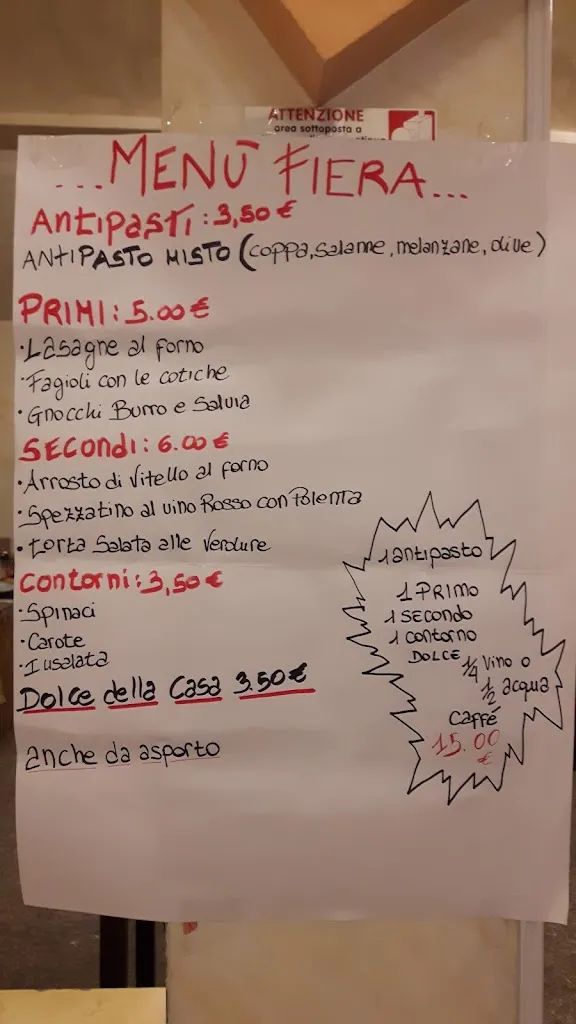 ATTENZIONE
area sottoposta a
...MENÙ FIERA...
Antipasti: 3,50 €
ANTIPASTO MISTO (coppa, salame, melanzane, olive)
PRIMI: 5.00 €
• Lasagne al forno
• Fagioli con le cotiche
• Gnocchi Burro e Salvia
SECONDI: 6.00 €
• Arrosto di Vitello al forno
• Spezzatino al vino Rosso con Polenta
• torta Salata alle Verdure
Contorni: 3,50 €
• Spinaci
• Carote
• Insalata
Dolce della Casa 3.50 €
anche da asporto
1 antipasto
1 PRIMO
1 SECONDO
1 contorno
DOLCE
1/4 Vino o
1/2 acqua
Caffé
15.00
€